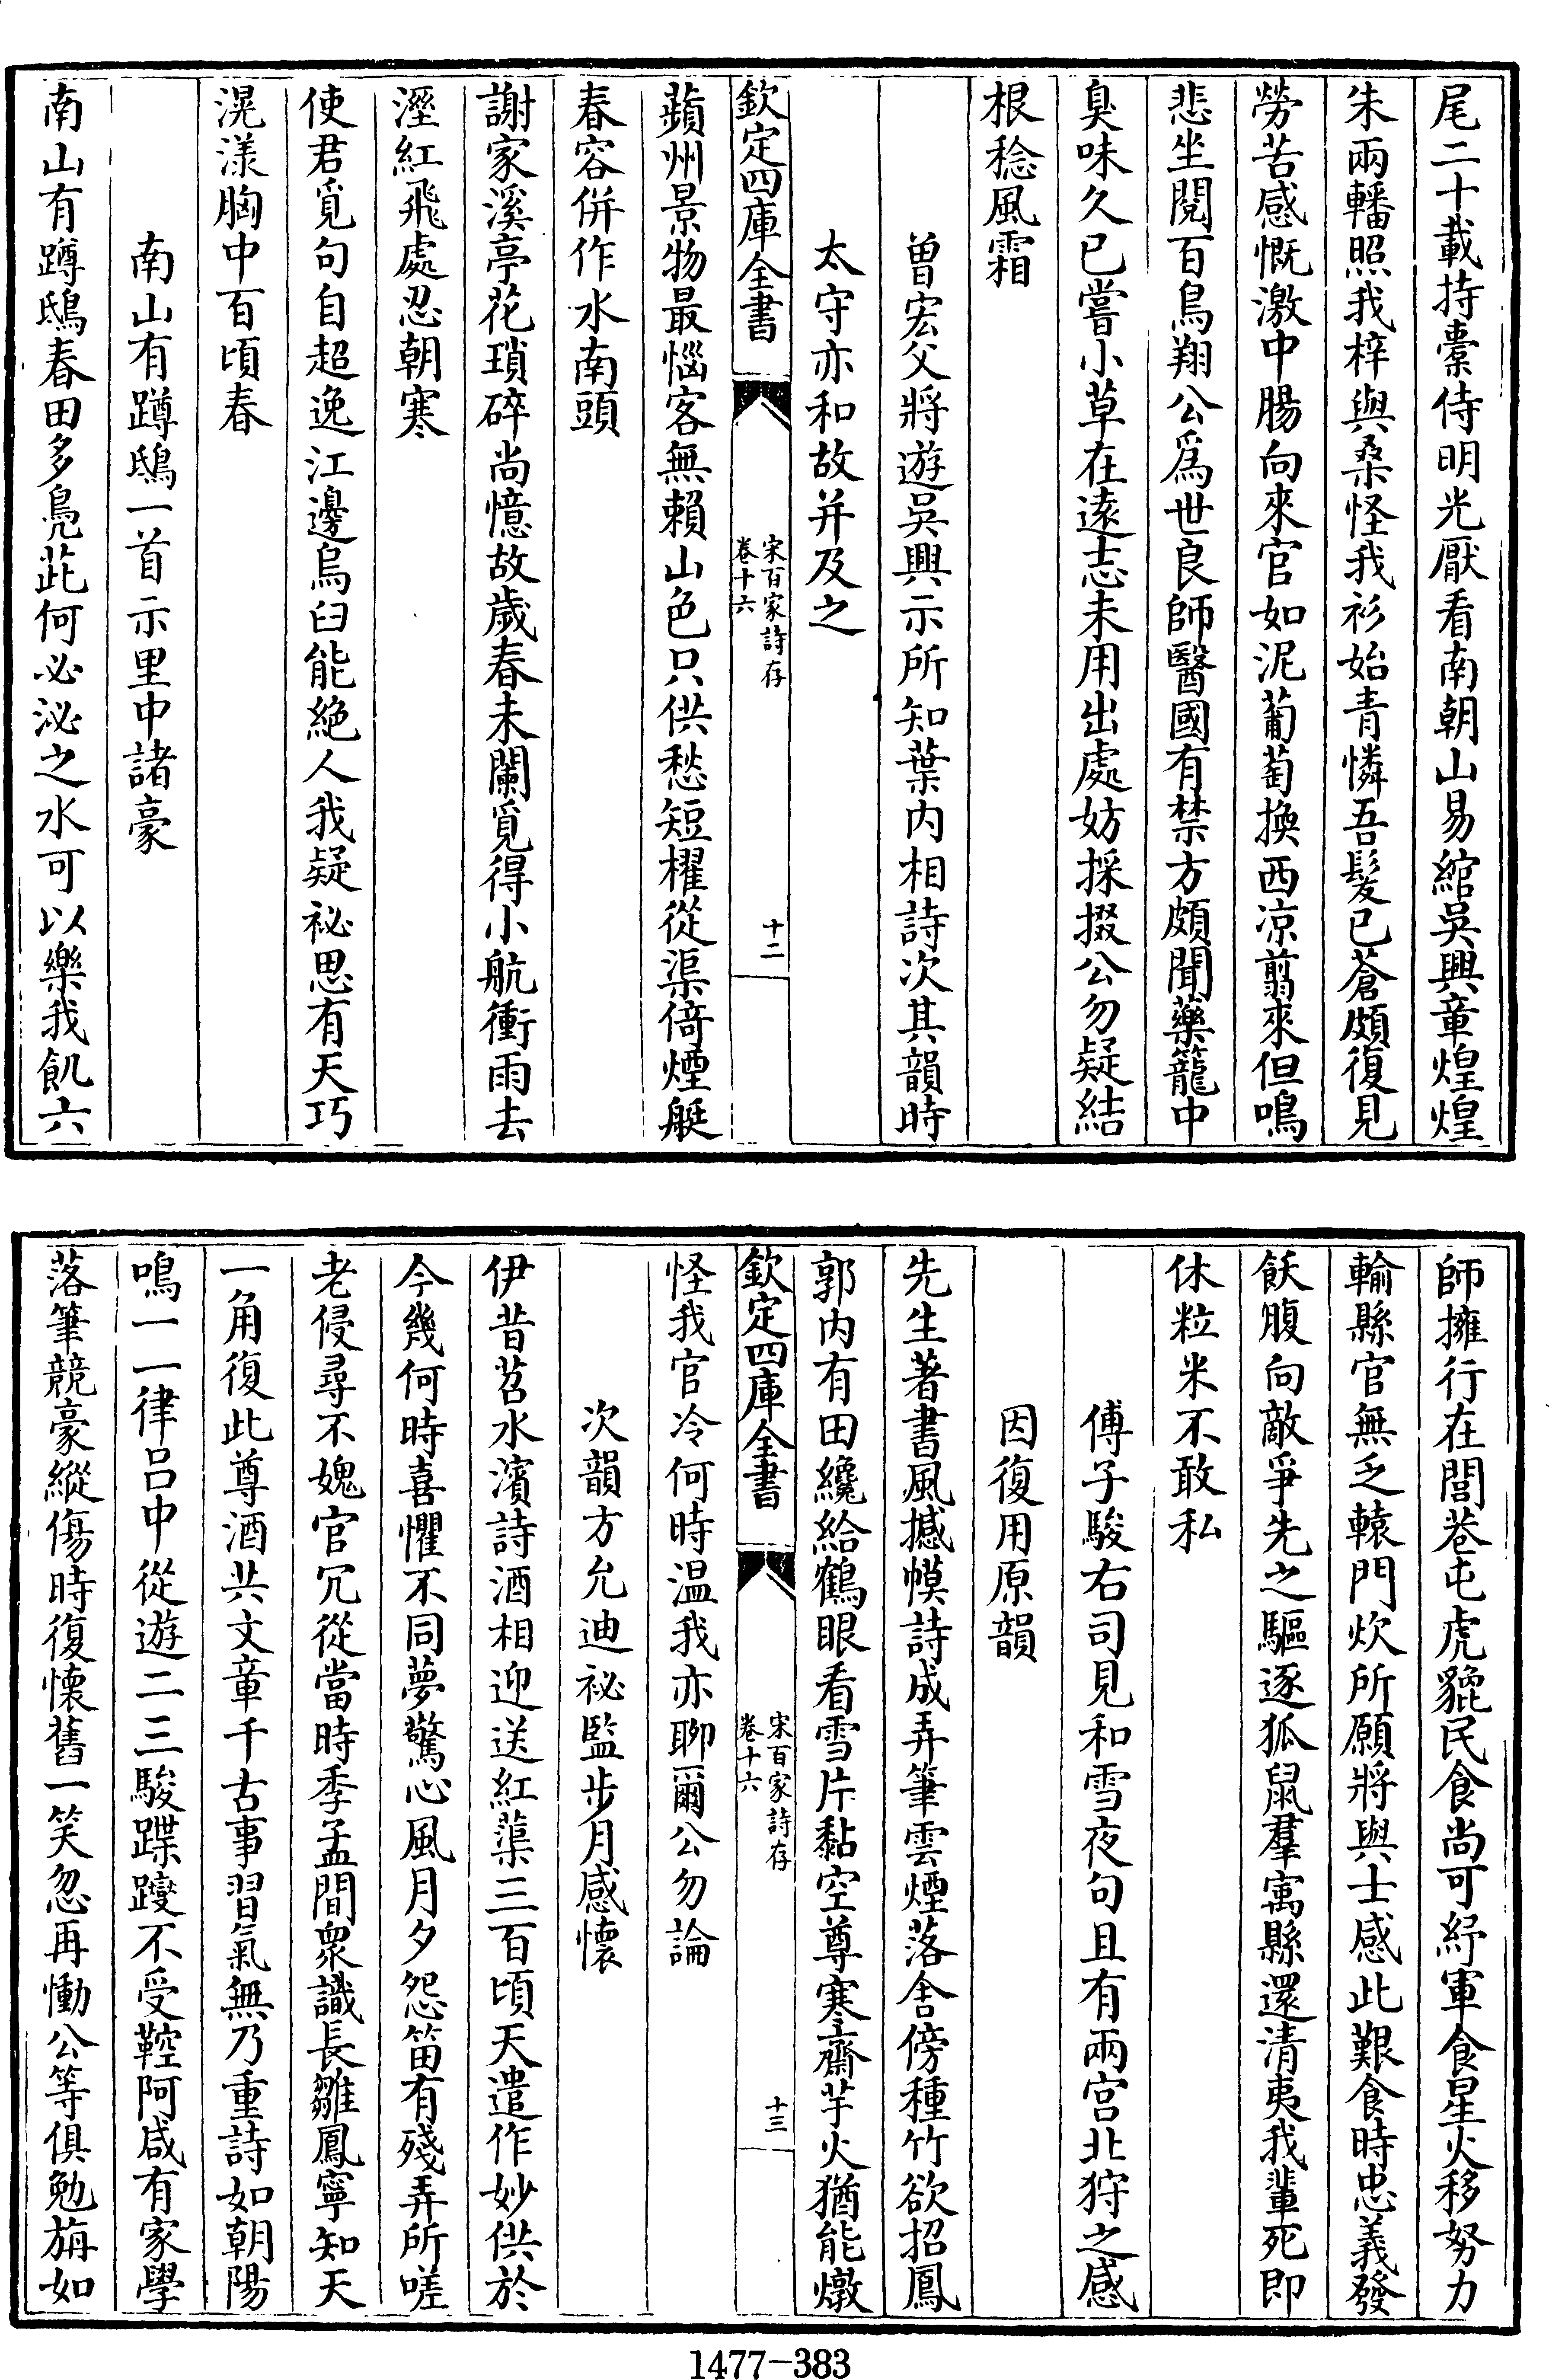 尾二十載持橐侍明光厭看南朝山易綰吳興章煌煌
朱兩轓照我梓與桑怪我衫始青憐吾髮已蒼頗復見
勞苦感慨激中腸向來官如泥葡萄換西凉翦來但鳴
悲坐閱百鳥翔公爲世良師醫國有禁方頗聞藥籠中
臭味久已嘗小草在遠志未用出處妨採掇公勿疑結
根稔風霜
曽宏父將遊吳興示所知葉内相詩次其韻時
太守亦和故并及之
欽定四庫全書
宋百家詩存
卷十六
十二
蘋州景物最惱客無賴山色只供愁短櫂從渠倚煙艇
春容併作水南頭
謝家溪亭花瑣碎尚憶故歲春未闌覓得小航衝雨去
溼紅飛處忍朝寒
使君覓句自超逸江邊烏臼能絶人我疑祕思有天巧
滉漾胸中百頃春
南山有蹲鴟一首示里中諸豪
南山有蹲鴟春田多鳧茈何必泌之水可以樂我飢六
師擁行在閭巷屯虎貔民食尚可紓軍食星火移努力
輸縣官無乏轅門炊所願將與士感此艱食時忠義發
飫腹向敵爭先之驅逐狐鼠羣㝢縣還清夷我輩死即
休粒米不敢私
傅子駿右司見和雪夜句且有兩宫北狩之感
因復用原韻
先生著書風撼幙詩成弄筆雲煙落舍傍種竹欲招鳳
郭内有田纔給鶴眼看雪片黏空尊寒齋芋火猶能燉
欽定四庫全書
宋百家詩存
卷十六
十三
怪我官冷何時温我亦聊爾公勿論
次韻方允迪祕監步月感懷
伊昔苕水濱詩酒相迎送紅蕖三百頃天遣作妙供於
今幾何時喜懼不同夢驚心風月夕怨笛有殘弄所嗟
老侵尋不媿官冗從當時季孟間衆識長雛鳳寧知天
一角復此尊酒共文章千古事習氣無乃重詩如朝陽
鳴一一律吕中從遊二三駿蹀躞不受鞚阿咸有家學
落筆競豪縱傷時復懷舊一笑忽再慟公等俱勉旃如
1477—383